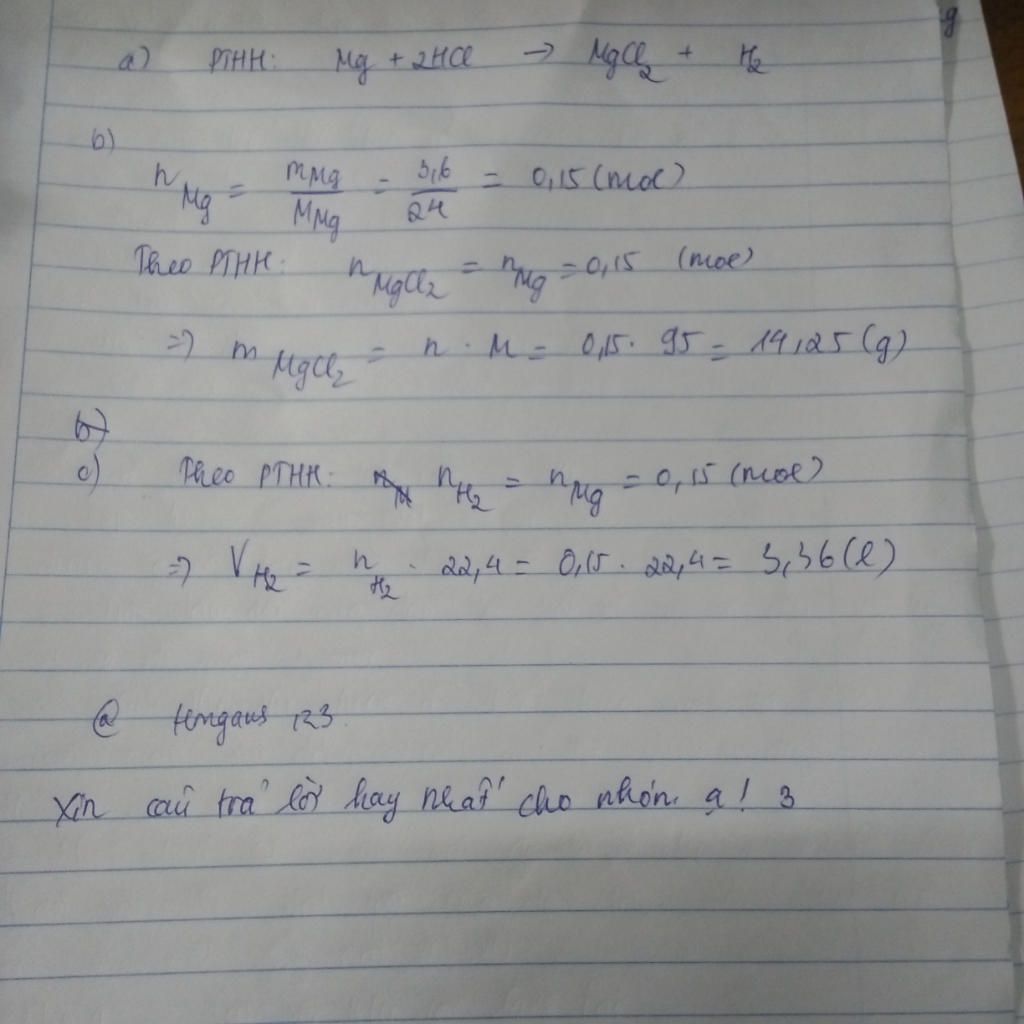 a) PTHH: Mg + 2HCl → MgCl₂ + H₂
b)
n_Mg = m_Mg / M_Mg = 3,6 / 24 = 0,15 (mol)
Theo PTHH: n_MgCl₂ = n_Mg = 0,15 (mol)
=> m_MgCl₂ = n . M = 0,15 . 95 = 14,25 (g)
b)
c) Theo PTHH: n_H₂ = n_Mg = 0,15 (mol)
=> V_H₂ = n_H₂ . 22,4 = 0,15 . 22,4 = 3,36 (l)
@ 123.
Xin câu trả lời hay nhất cho nhóm ạ! 3